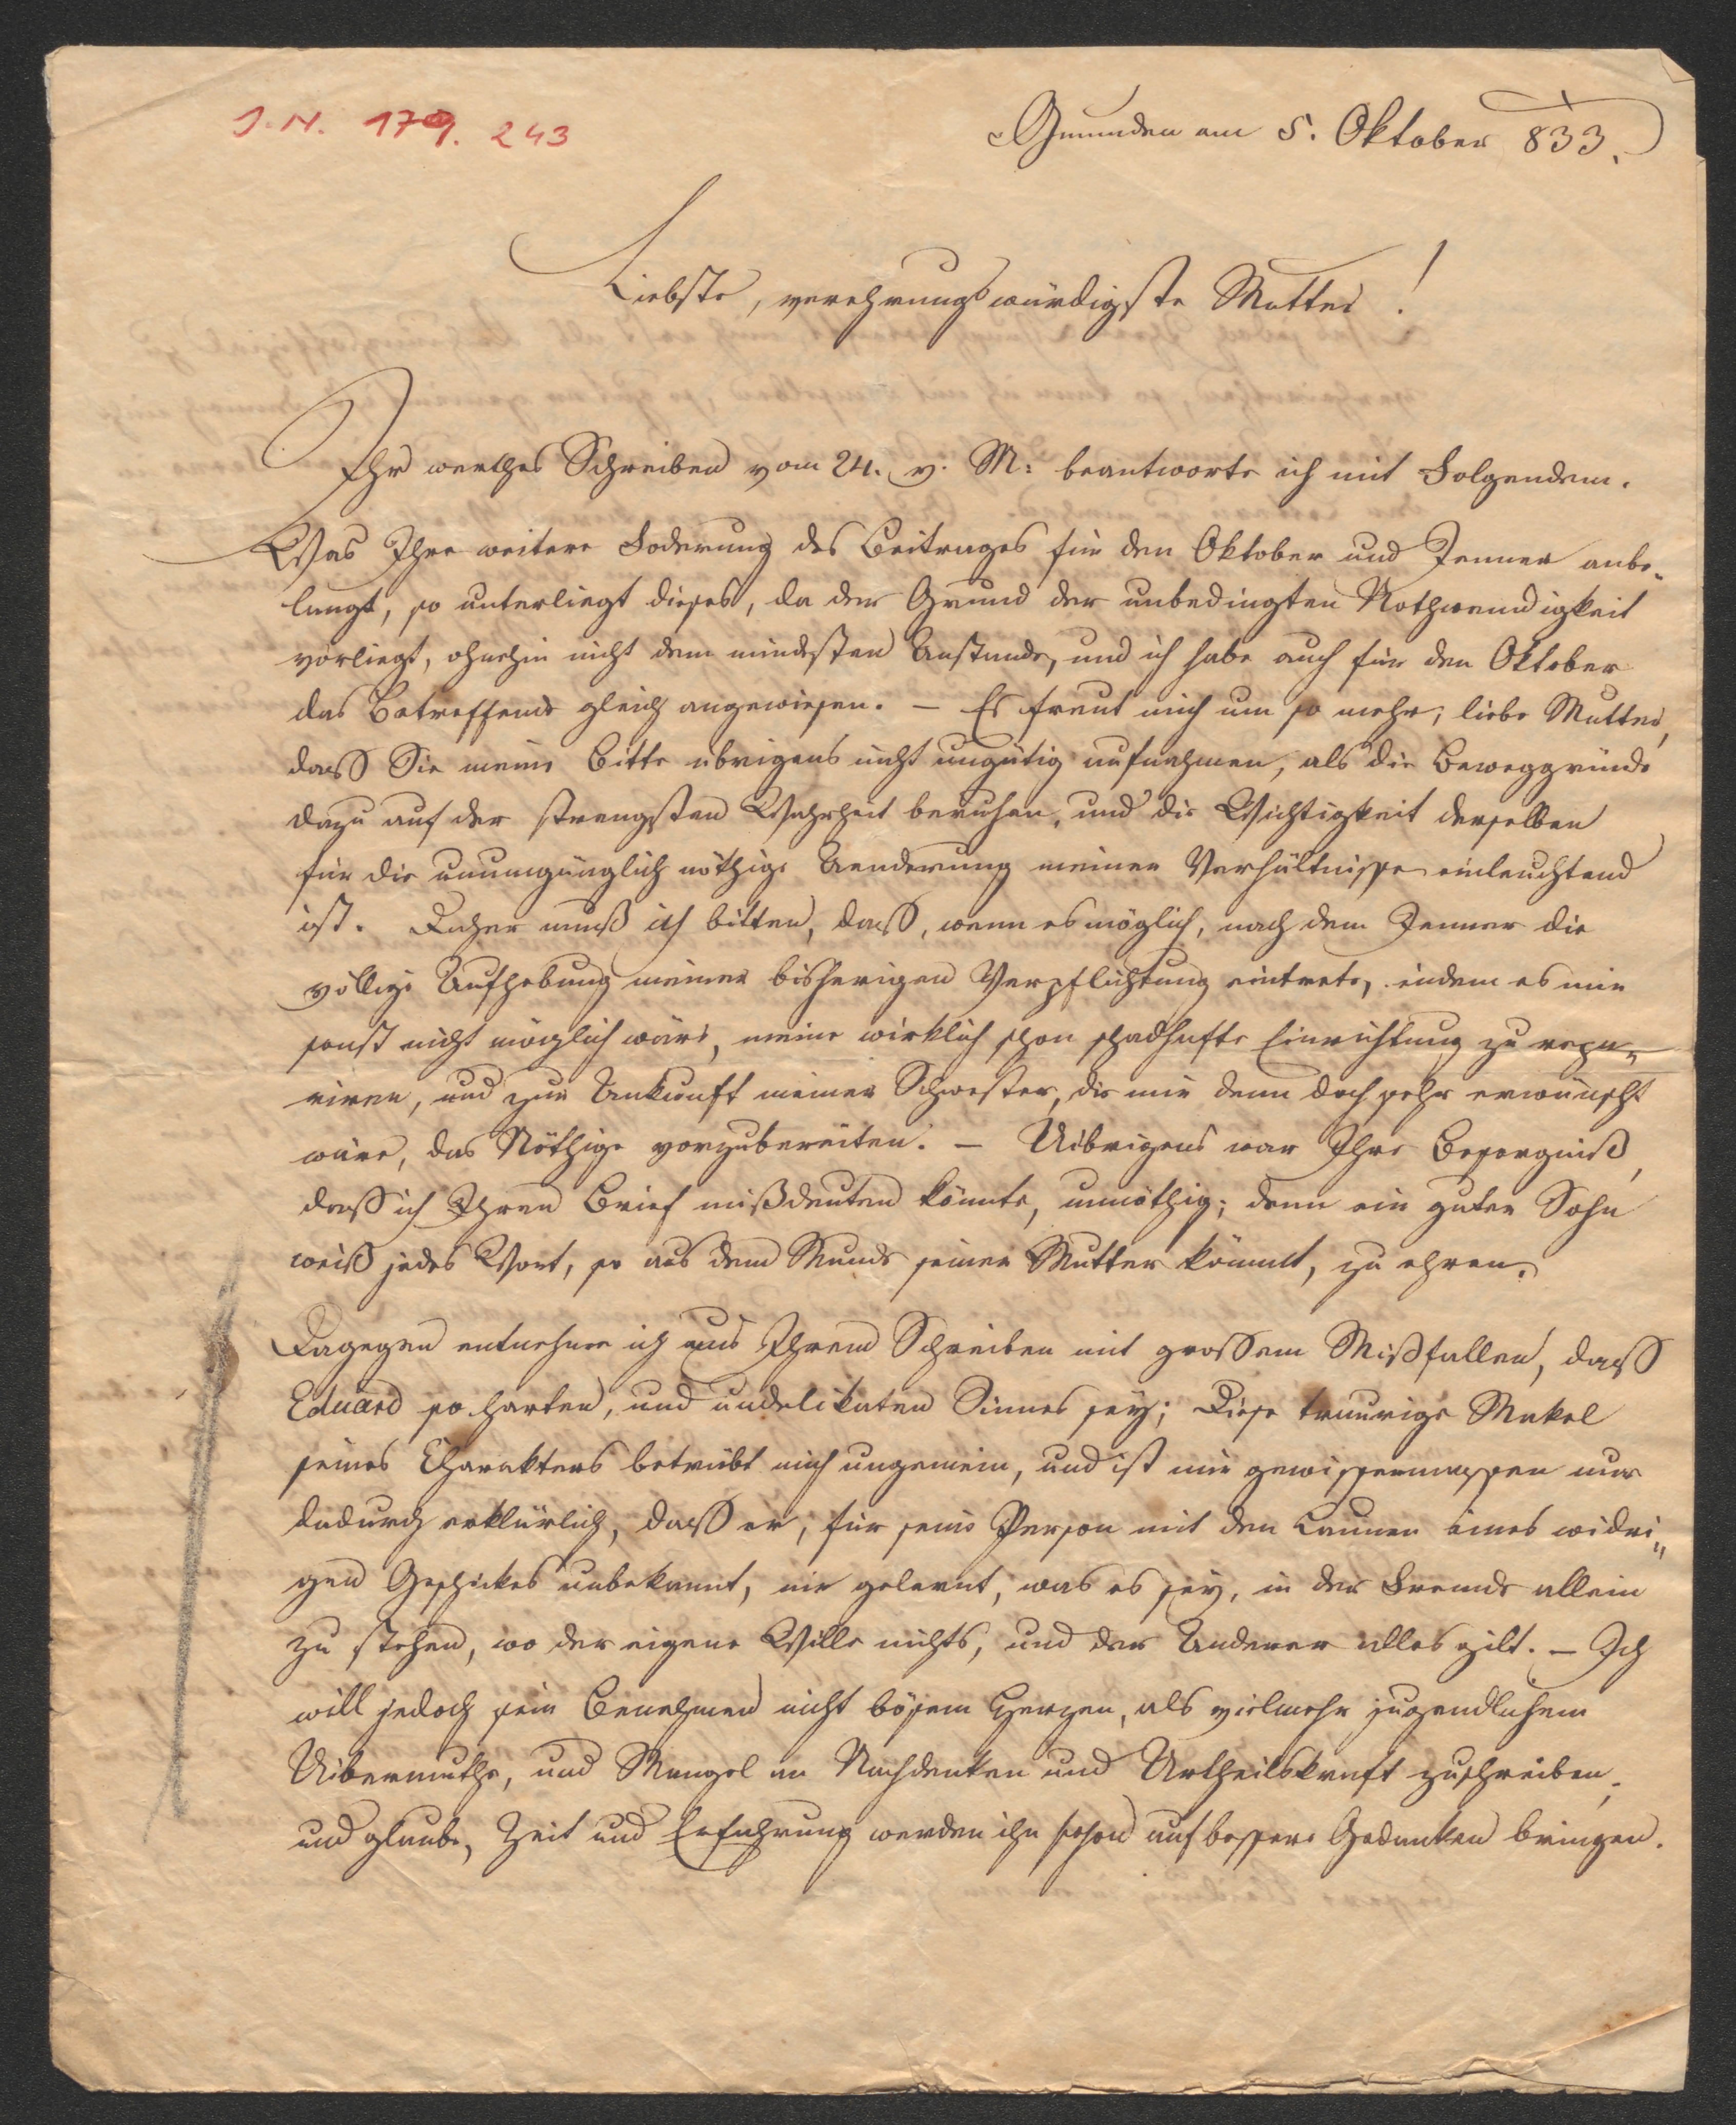 J. N. 179. 243
Gmunden am 5. Oktober 833.
Liebste, verehrungswürdigste Mutter!
Ihr werthes Schreiben vom 24. v. M: beantworte ich mit Folgendem.
Was Ihre weitere Foderung des Beitrages für den Oktober und Jenner anbe-
langt, so unterliegt dieses, da der Grund der unbedingten Nothwendigkeit
vorliegt, ohnehin nicht dem mindesten Anstande, und ich habe auch für den Oktober
das Betreffende gleich angewiesen. – Es freut mich um so mehr, liebe Mutter,
daß Sie meine Bitte übrigens nicht ungütig aufnahmen, als die Beweggründe
dazu auf der strengsten Wahrheit beruhen, und die Wichtigkeit derselben
für die unumgänglich nöthige Aenderung meiner Verhältnisse einleuchtend
ist. Daher muß ich bitten, daß, wenn es möglich, nach dem Jenner die
völlige Aufhebung meiner bisherigen Verpflichtung eintrete, indem es mir
sonst nicht möglich wäre, meine wirklich schon schadhafte Einrichtung zu repa-
riren, und zur Ankunft meiner Schwester, die mir denn doch sehr erwünscht
wäre, das Nöthige vorzubereiten. – Uibrigens war Ihre Besorgniß,
daß ich Ihren Brief mißdeuten könnte, unnöthig; denn ein guter Sohn
weiß jedes Wort, so aus dem Munde seiner Mutter kömmt, zu ehren.
Dagegen entnehme ich aus Ihrem Schreiben mit großem Mißfallen, daß
Eduard so harten, und undelikaten Sinnes sey; Diese traurige Makel
seines Charakters betrübt mich ungemein, und ist mir gewissermassen nur
dadurch erklärlich, daß er, für seine Person mit den Launen eines widri„
gen Geschickes unbekannt, nie gelernt, was es sey, in der Fremde allein
zu stehen, wo der eigene Wille nichts, und der Anderer alles gilt. – Ich
will jedoch sein Benehmen nicht bösem Herzen, als vielmehr jugendlichem
Uibermuthe, und Mangel an Nachdenken und Urtheilskraft zuschreiben,
und glaube, Zeit und Erfahrung werden ihn schon auf bessere Gedanken bringen.